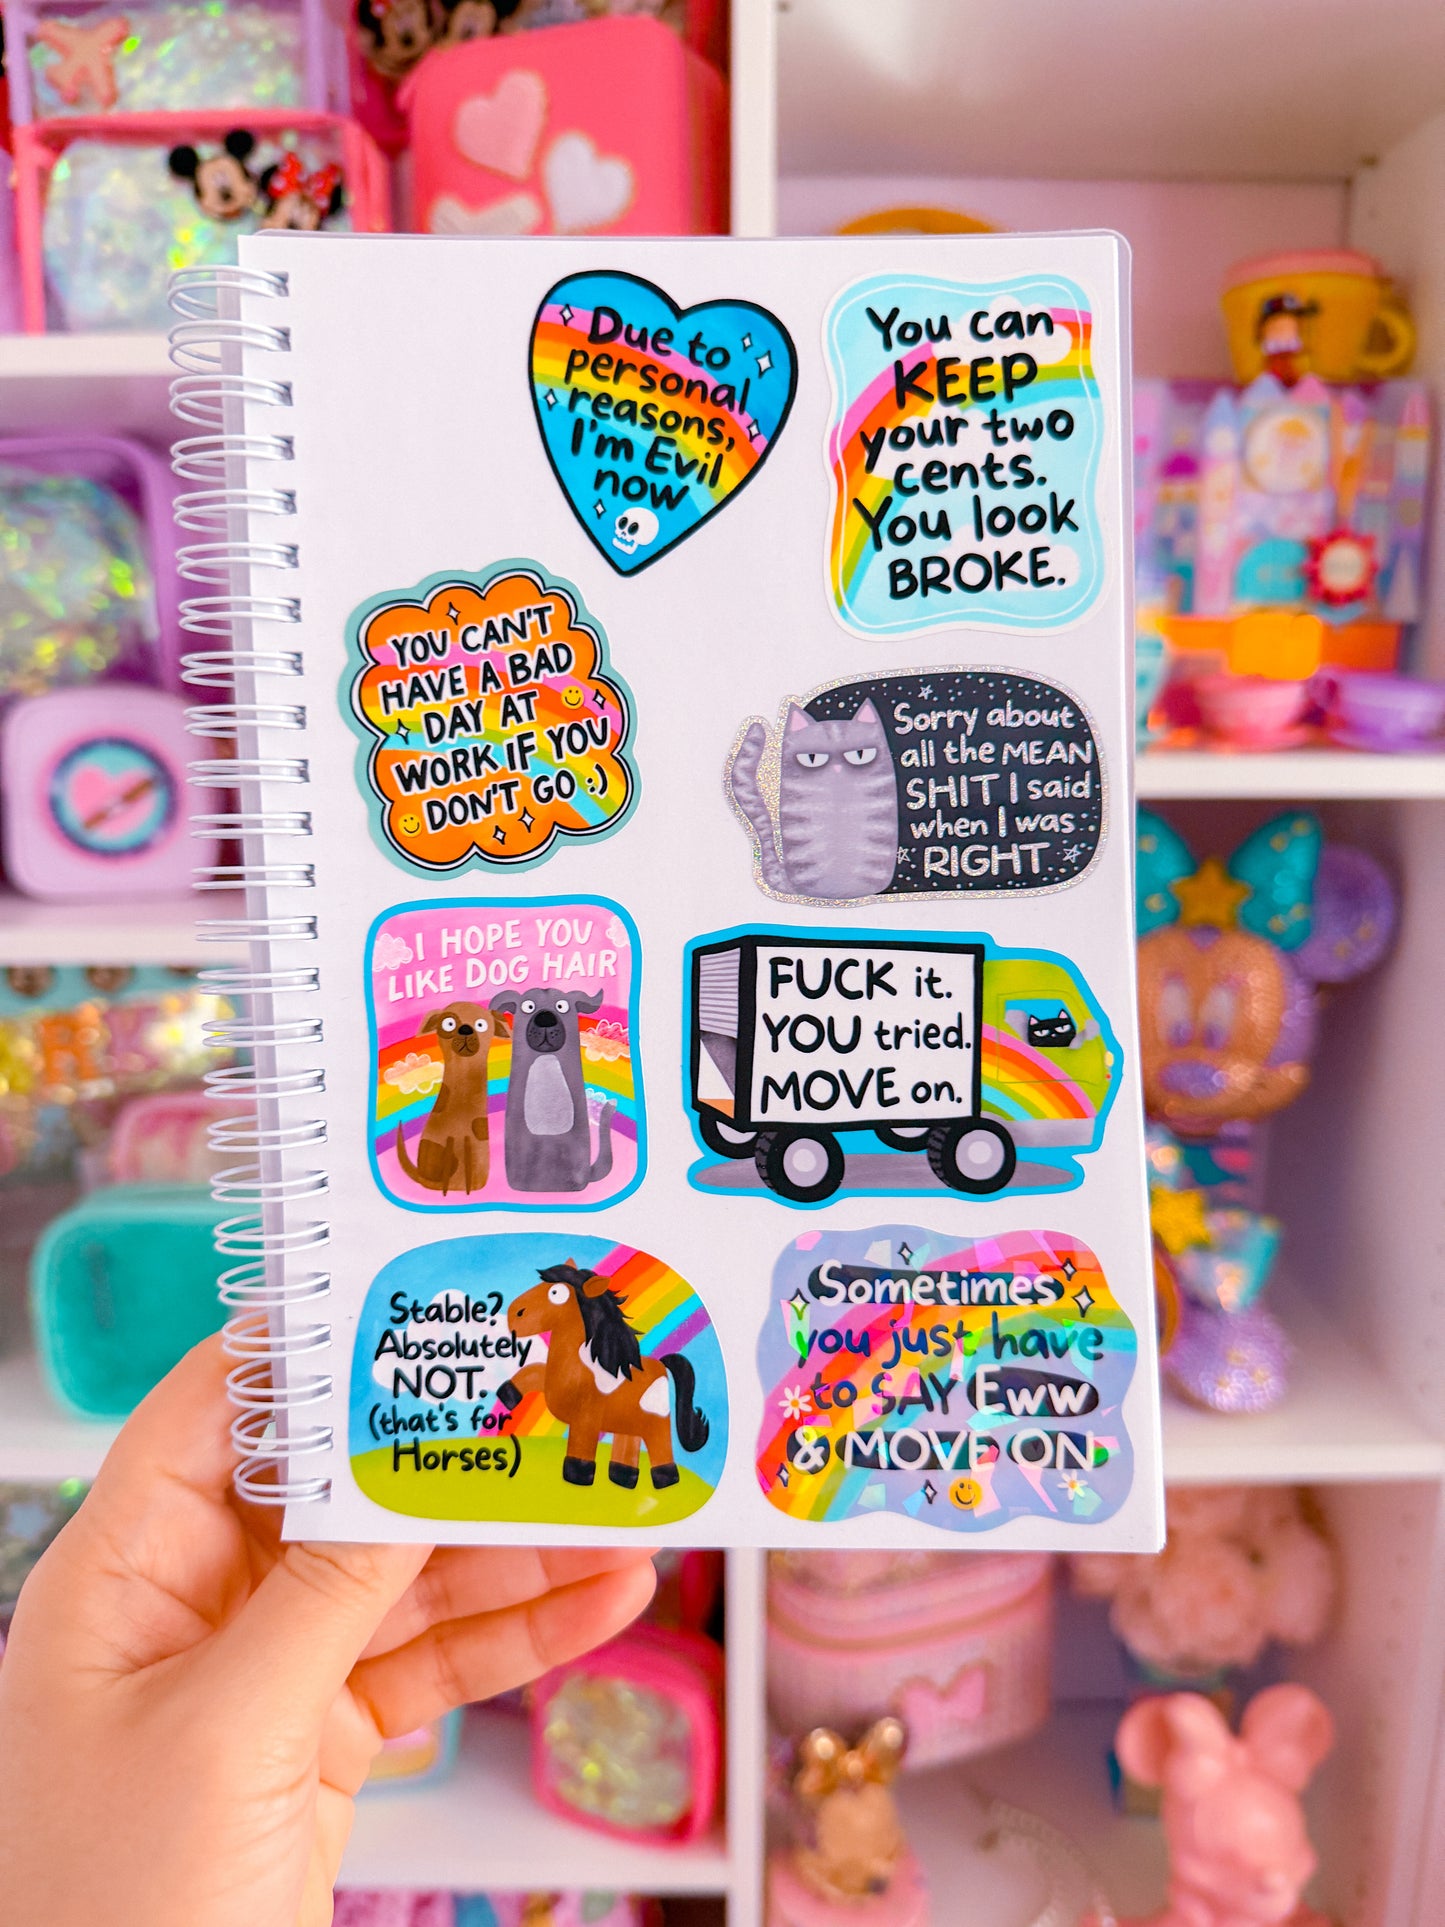 Due to
personal
reasons,
I'm Evil
now
You can
KEEP
your two
cents.
You look
BROKE.
YOU CAN'T
HAVE A BAD
DAY AT
WORK IF YOU
DON'T GO :)
Sorry about
all the MEAN
SHIT I said
when I was
RIGHT
I HOPE YOU
LIKE DOG HAIR
FUCK it.
YOU tried.
MOVE on.
Stable?
Absolutely
NOT.
(that's for
Horses)
Sometimes
you just have
to SAY Eww
& MOVE ON